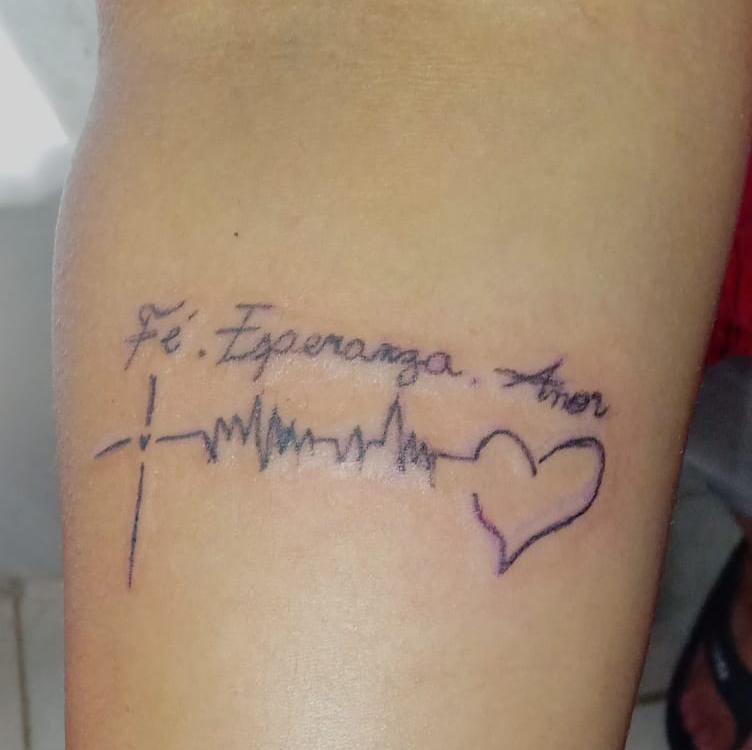 Fé. Esperanza. Amor